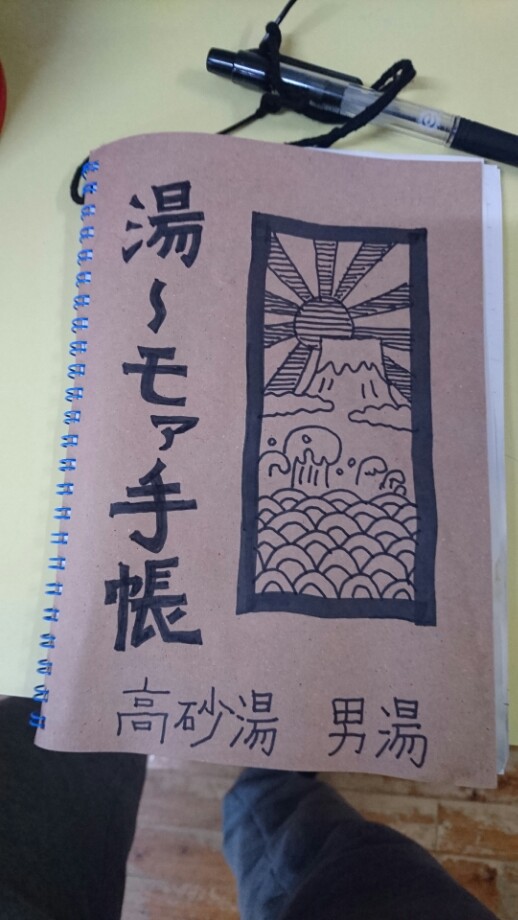 湯〜モァ手帳
高砂湯 男湯